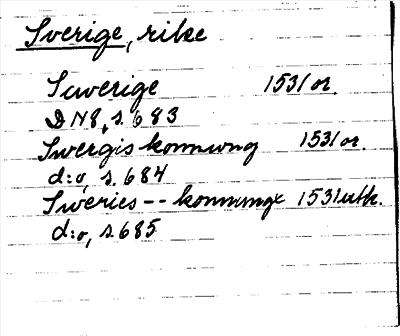 Sverige, rike
Suverige 1531 or.
DN8, s. 683
Swergis konnwng 1531 or.
d:o, s. 684
Sweries -- konnunge 1531 utk.
d:o, s. 685